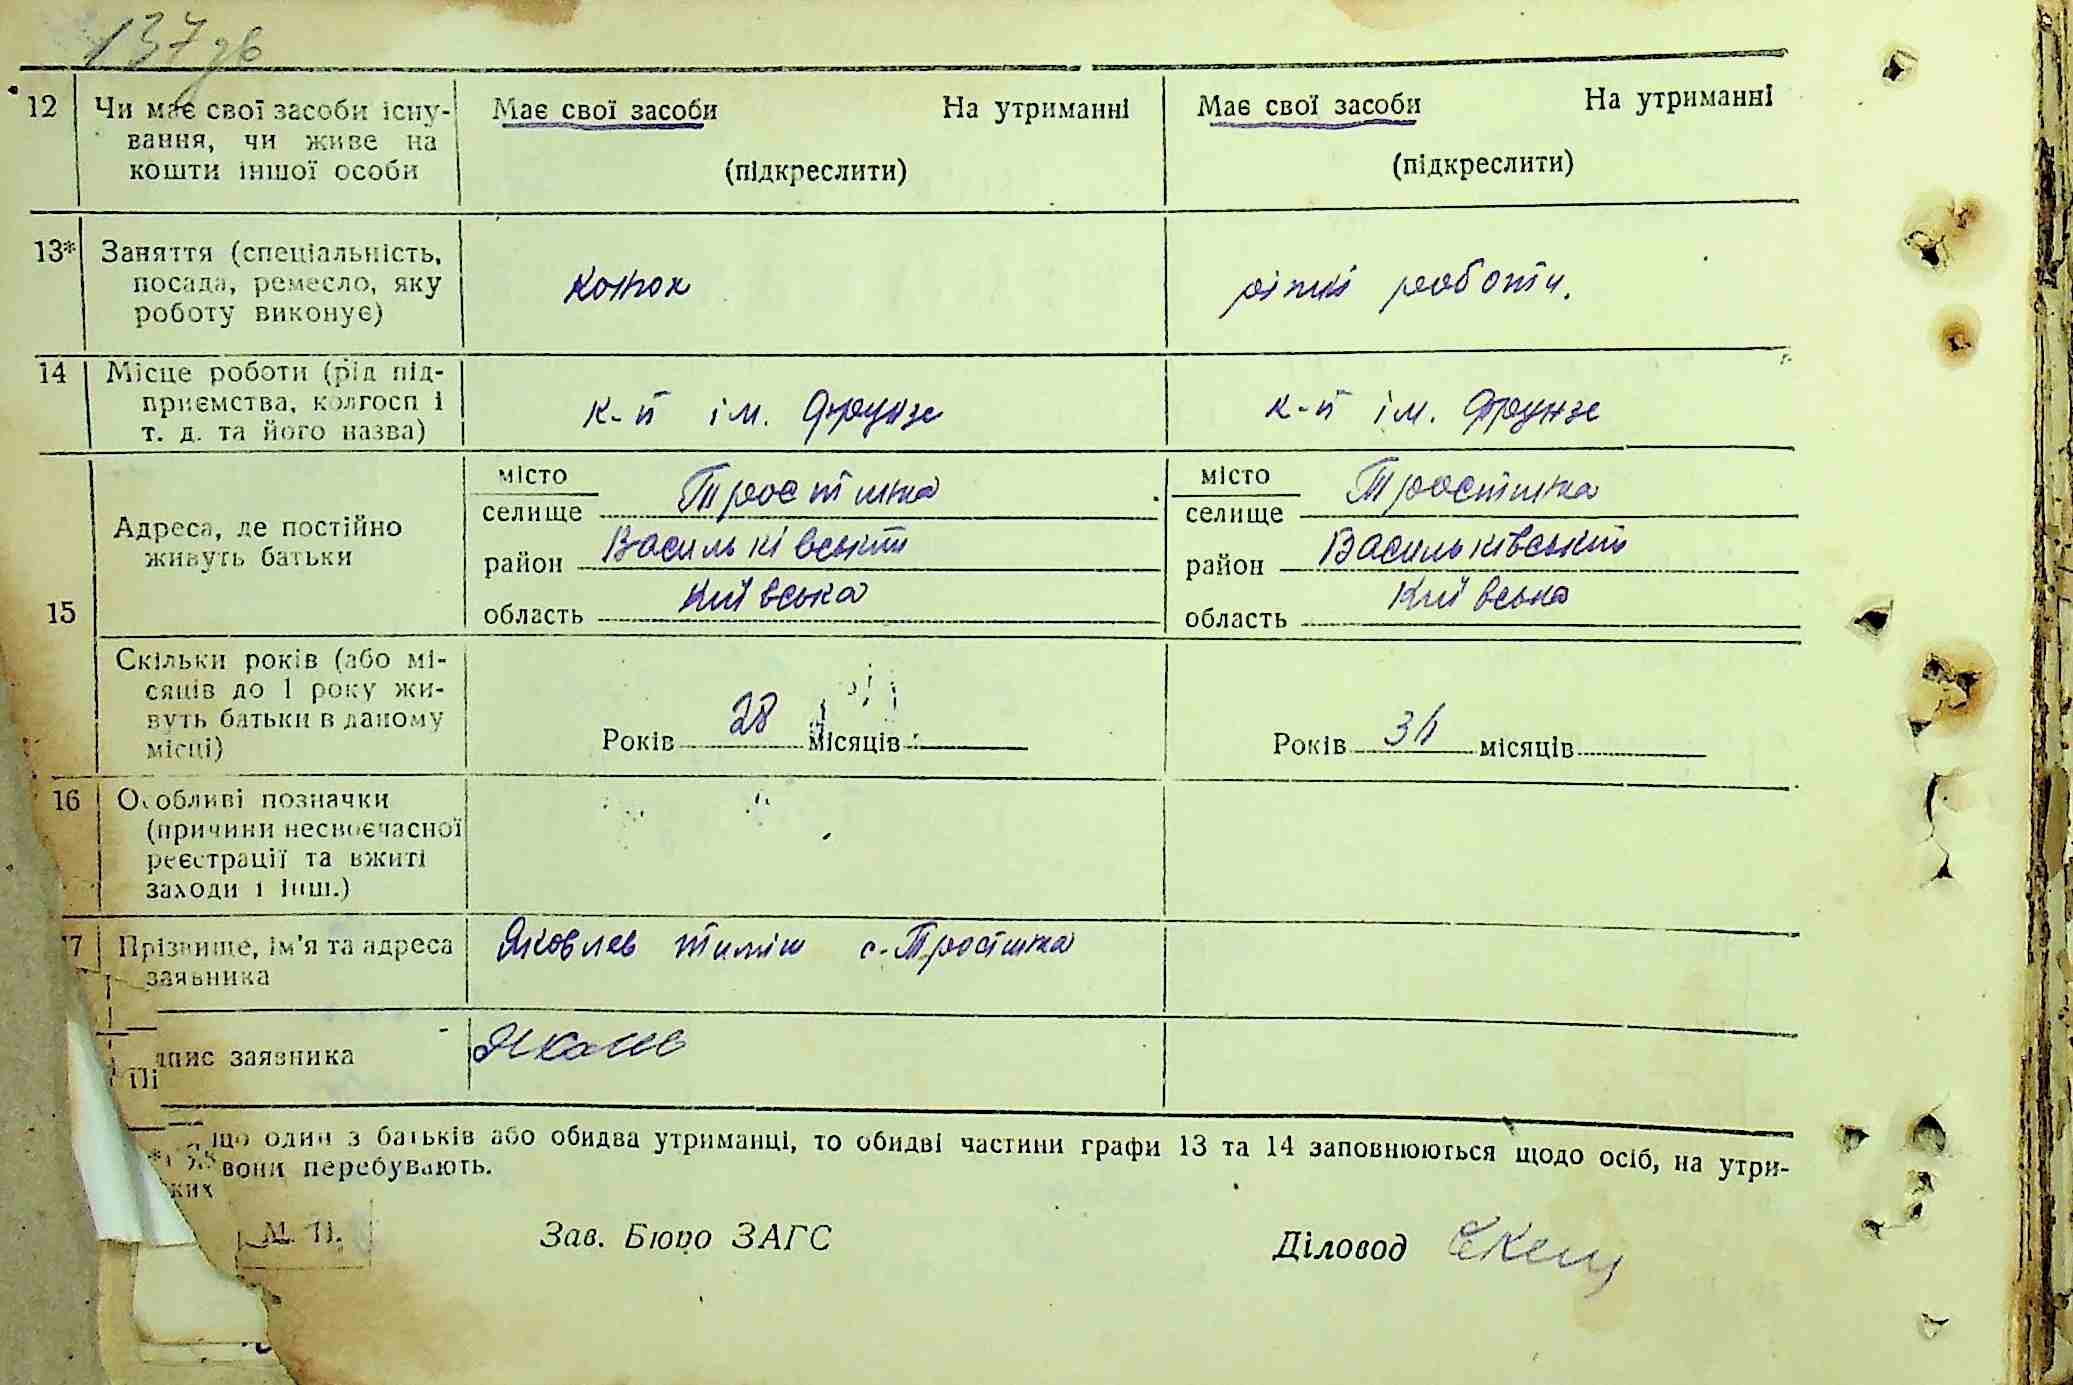 137 зв
12 Чи має свої засоби існу- Має свої засоби На утриманні Має свої засоби На утриманні
вання, чи живе на
кошти іншої особи (підкреслити) (підкреслити)
13* Заняття (спеціальність,
посада, ремесло, яку конюх різні роботи.
роботу виконує)
14 Місце роботи (рід під-
приємства, колгосп і к-п ім. Фрунзе к-п ім. Фрунзе
т. д. та його назва)
місто Тростинка місто Тростинка
селище селище
Адреса, де постійно
живуть батьки район Васильківський район Васильківський
15 область Київська область Київська
Скільки років (або мі-
сяців до 1 року жи-
вуть батьки в даному
місці) Років 28 місяців Років 34 місяців
16 Особливі позначки
(причини несвоєчасної
реєстрації та вжиті
заходи і інш.)
17 Прізвище, ім'я та адреса Яковлев Тиміш с. Тростинка
заявника
Підпис заявника
що один з батьків або обидва утриманці, то обидві частини графи 13 та 14 заповнюються щодо осіб, на утри-
яких вони перебувають.
М. П. Зав. Бюро ЗАГС Діловод